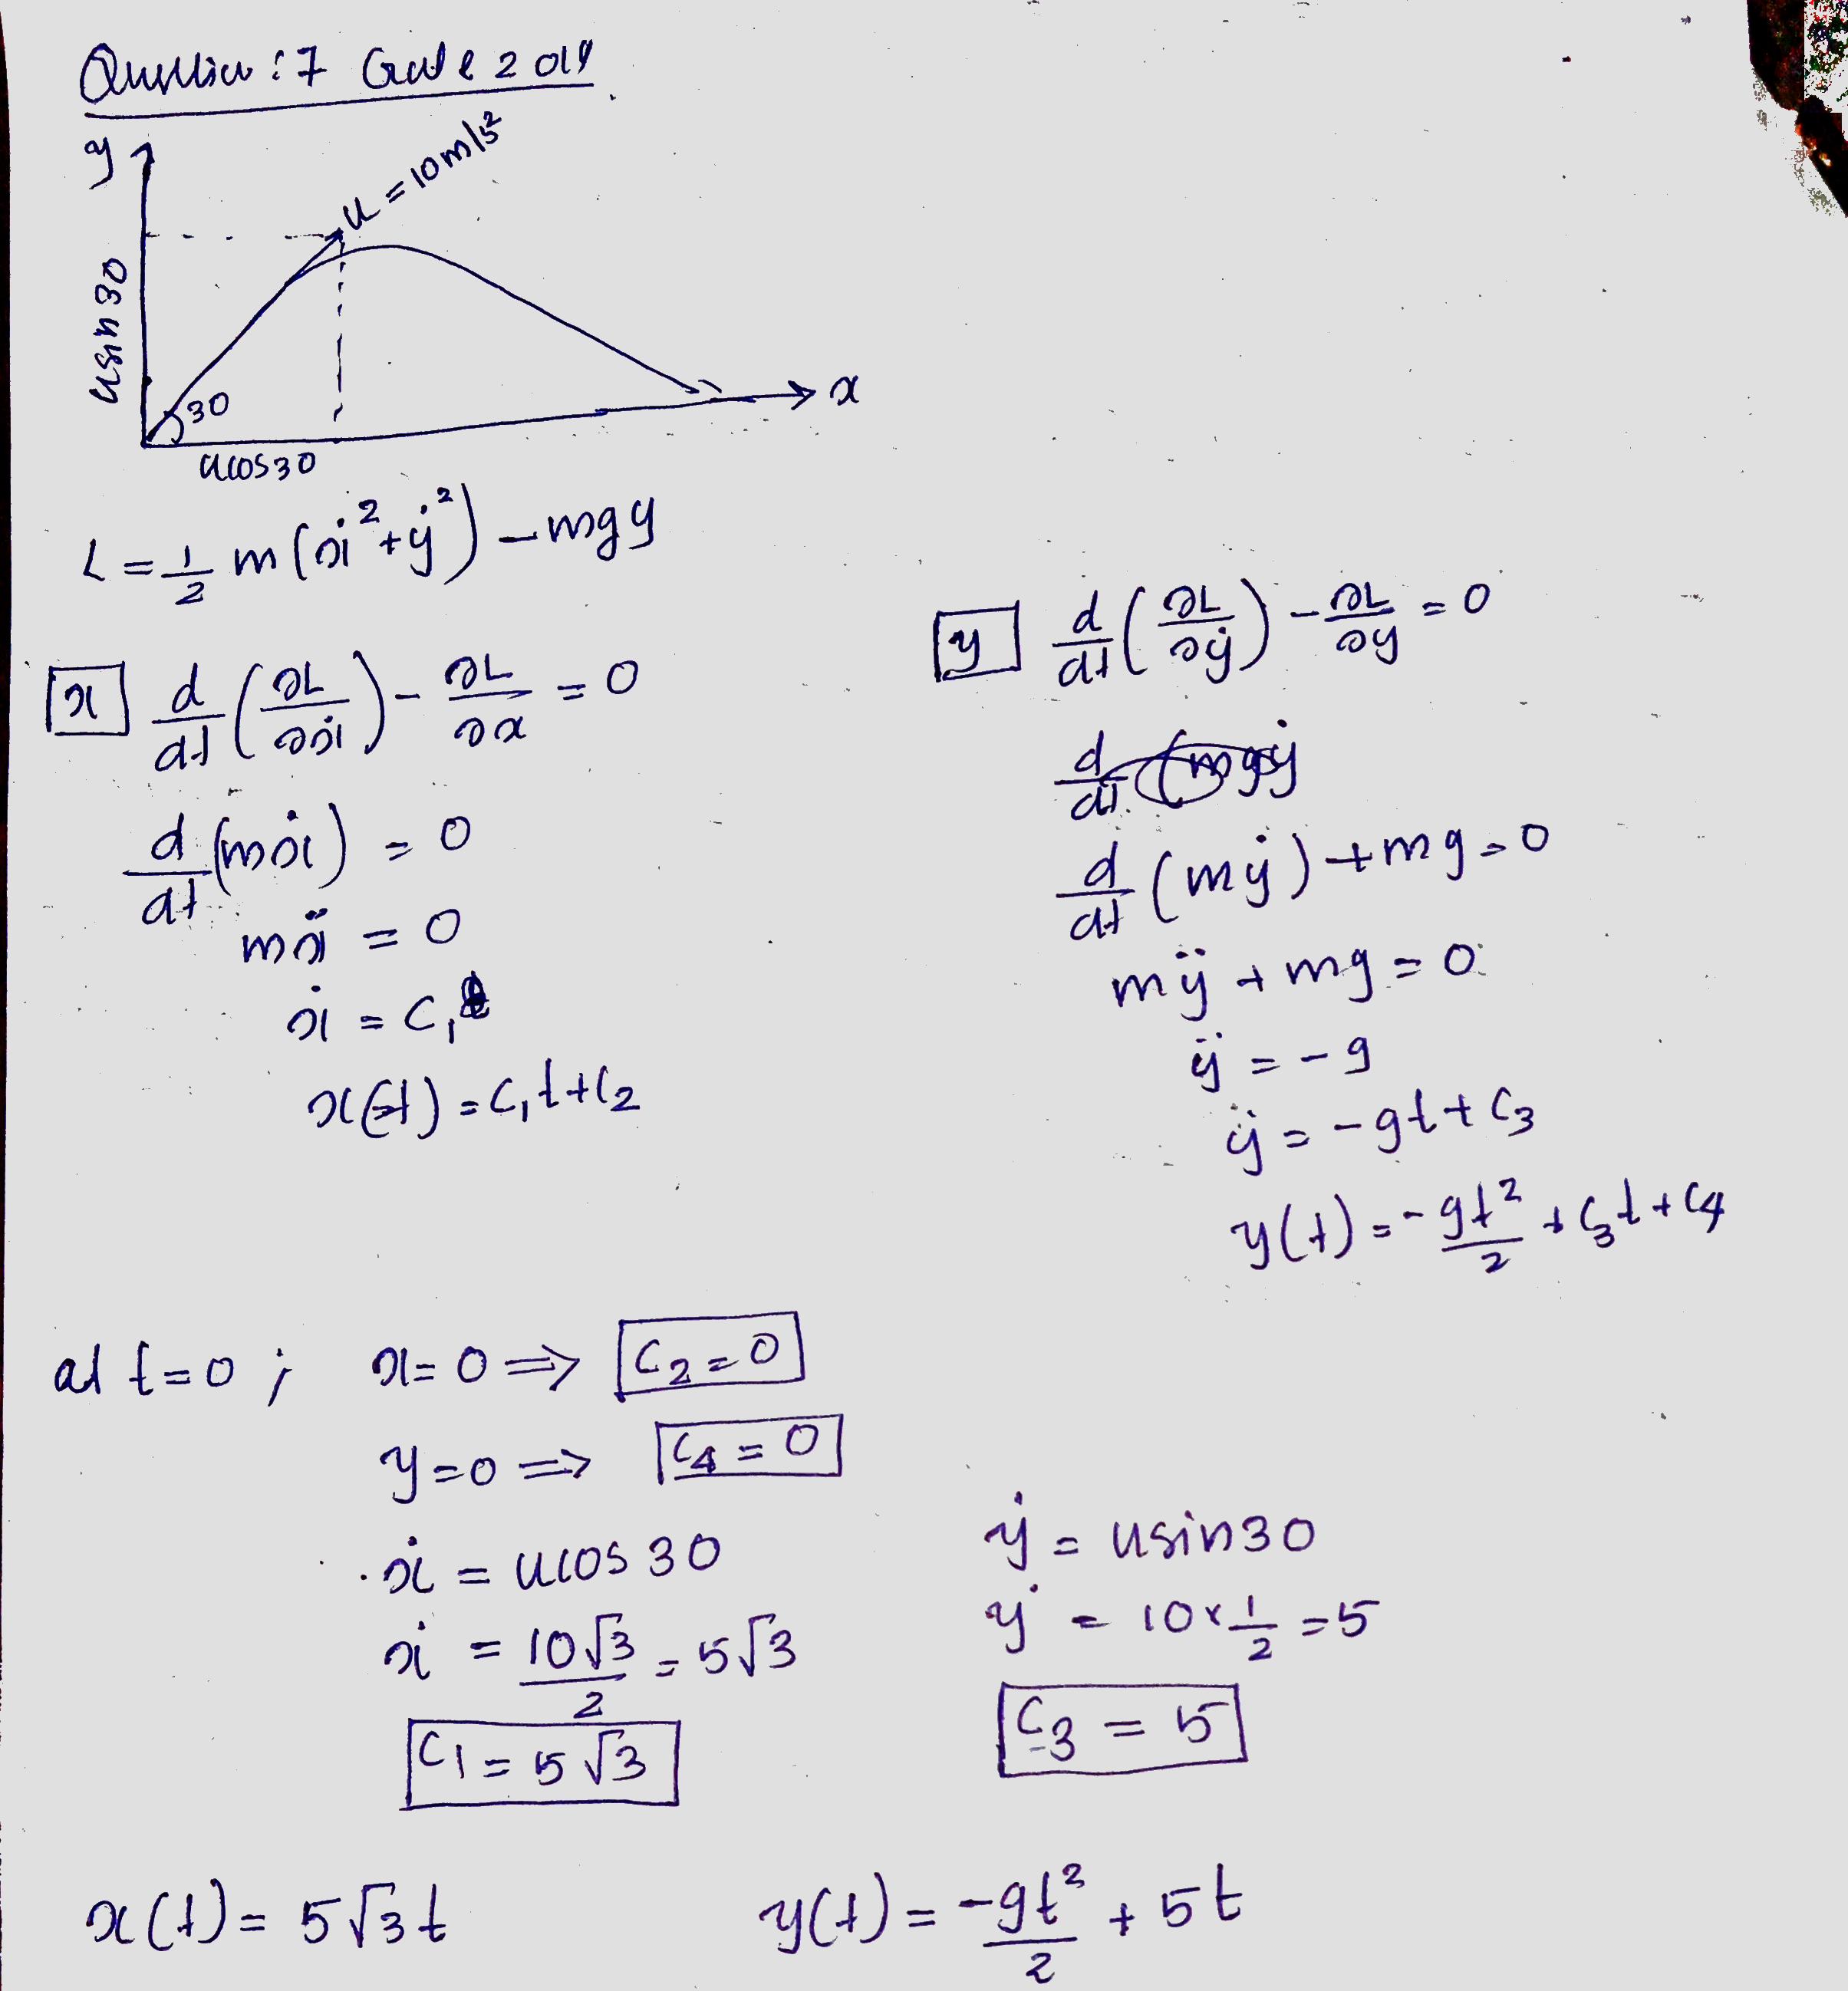 Question : 7 Gate 2019
y
u = 10 m/s²
usin 30
30
x
ucos30
L = 1/2 m(ẋ² + ẏ²) - mgy
x d/dt (∂L/∂ẋ) - ∂L/∂x = 0
d/dt (mẋ) = 0
mẍ = 0
ẋ = C₁
x(t) = C₁t + C₂
y d/dt (∂L/∂ẏ) - ∂L/∂y = 0
d/dt (mẏ) + mg = 0
mÿ + mg = 0
ÿ = -g
ẏ = -gt + C₃
y(t) = -gt²/2 + C₃t + C₄
at t=0 ; x=0 ⇒ C₂ = 0
y=0 ⇒ C₄ = 0
ẋ = ucos 30
ẋ = 10√3/2 = 5√3
C₁ = 5√3
ẏ = usin30
ẏ = 10 × 1/2 = 5
C₃ = 5
x(t) = 5√3t
y(t) = -gt²/2 + 5t